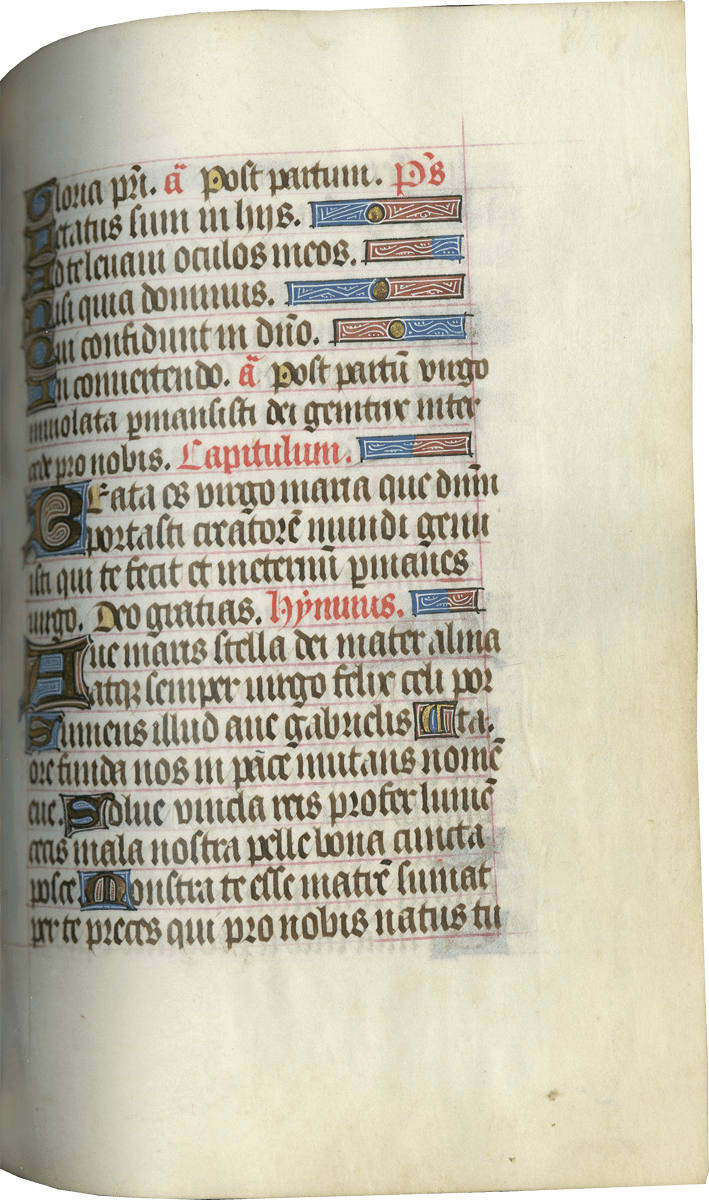 Gloria pr̄i. ā Post partum. Ps̄
Letatus sum in hijs.
Ad te leuaui oculos meos.
Nisi quia dominus.
Qui confidunt in dn̄o.
In conuertendo. ā post partū virgo
inuiolata ꝑmansisti dei genitrix inter
cede pro nobis. Capitulum.
BEata es virgo maria que dn̄m
portasti creatorē mundi genu
isti qui te fecit et ineternū ꝑmanes
uirgo. Deo gratias. Hymnus.
Aue maris stella dei mater alma
atqꝫ semper uirgo felix celi por
Sumens illud aue gabrielis ta.
ore funda nos in pācē mutans nomē
eue. Solue vincla reis profer lumē
cecis mala nostra pelle bona cuncta
posce Monstra te esse matrē sumat
per te preces qui pro nobis natus tu